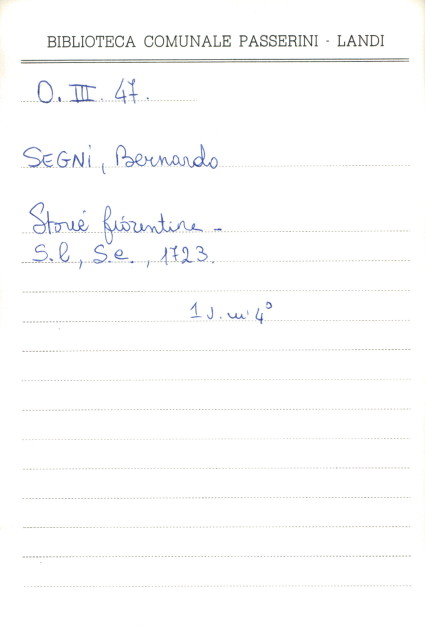 BIBLIOTECA COMUNALE PASSERINI - LANDI
O. III. 47.
SEGNI, Bernardo
Storie fiorentine -
S.l, S.e., 1723.
1 v. in 4°